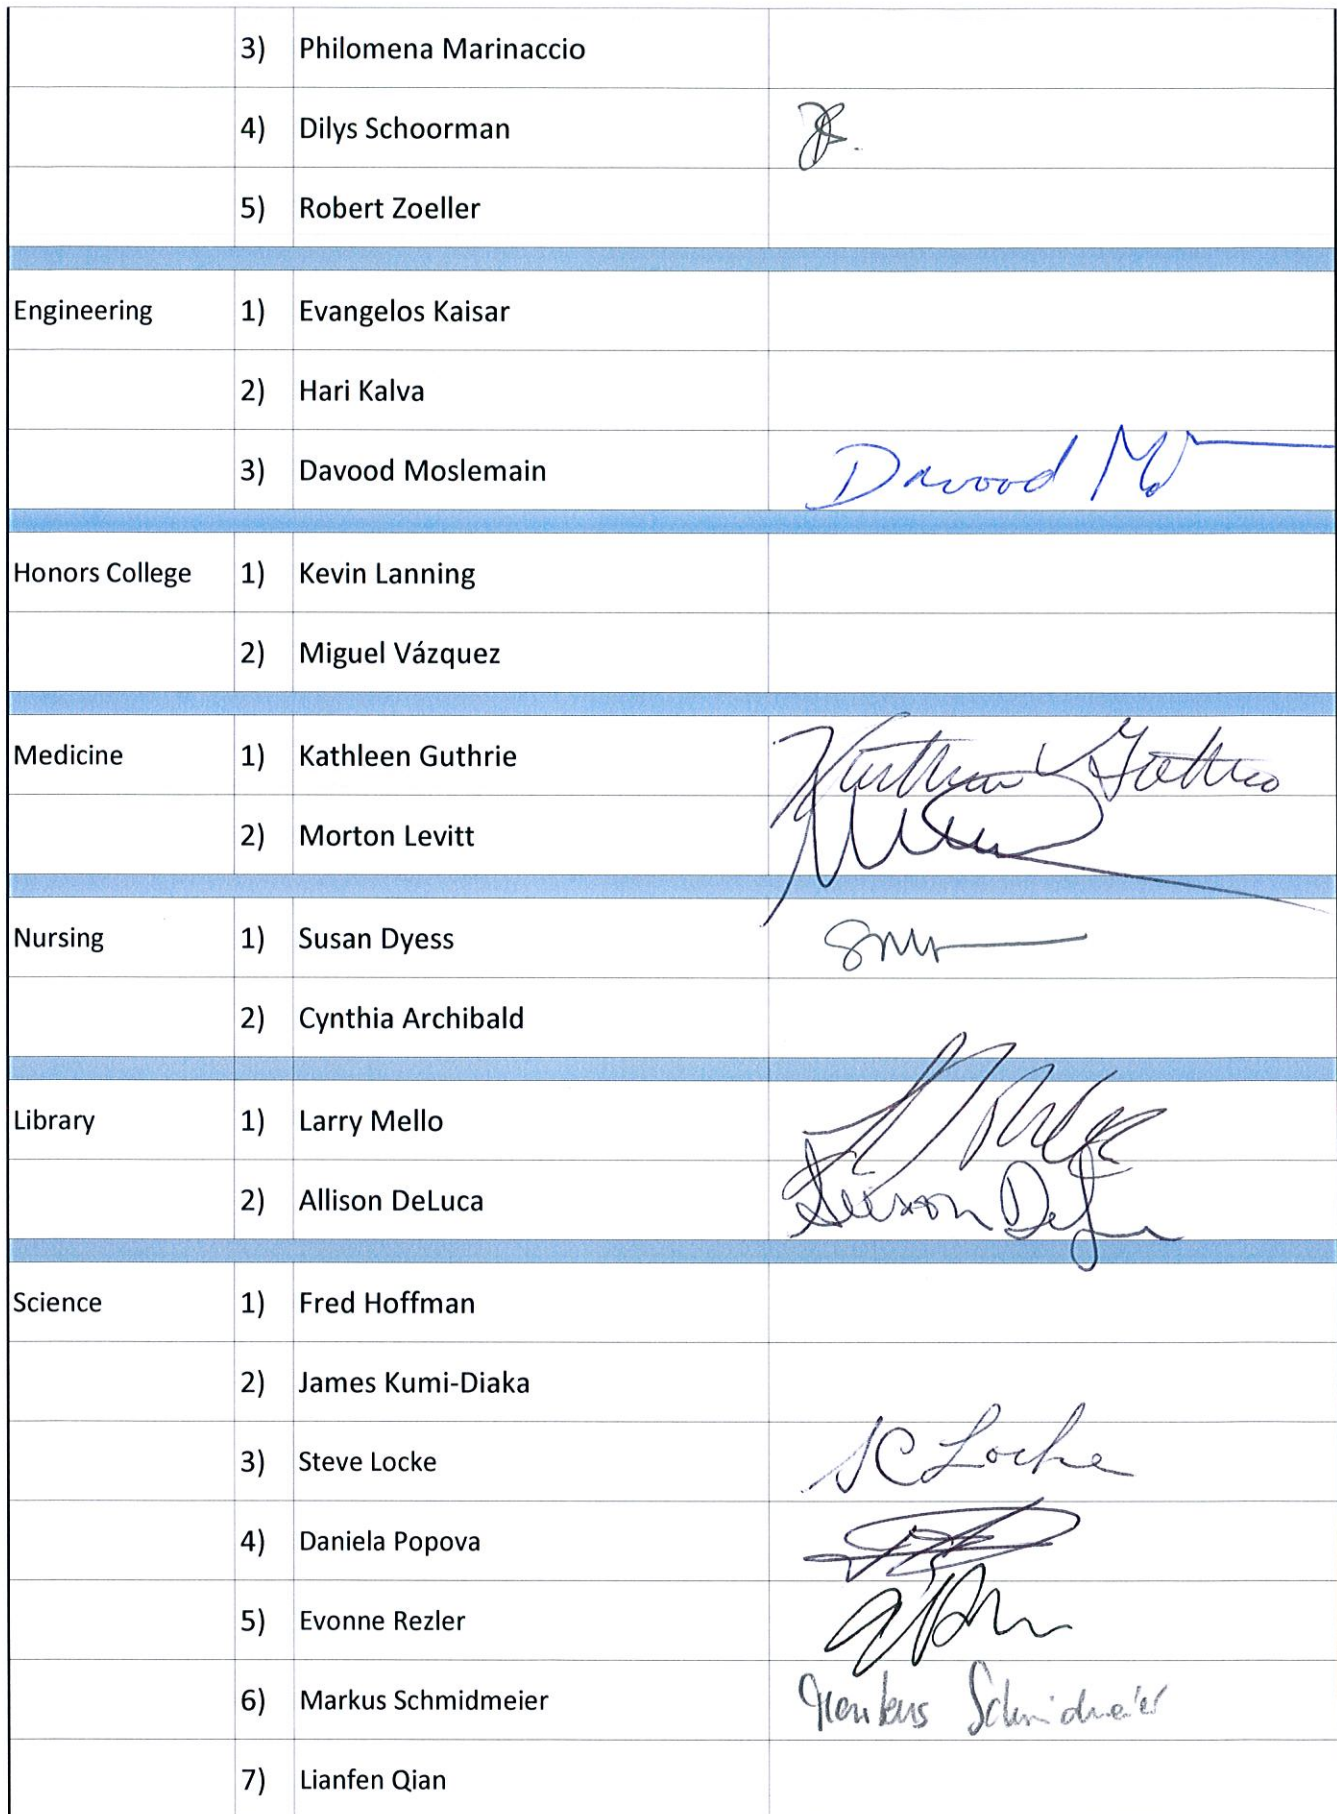 3) Philomena Marinaccio
4) Dilys Schoorman
5) Robert Zoeller
Engineering 1) Evangelos Kaisar
2) Hari Kalva
3) Davood Moslemain Davood
Honors College 1) Kevin Lanning
2) Miguel Vázquez
Medicine 1) Kathleen Guthrie
2) Morton Levitt
Nursing 1) Susan Dyess
2) Cynthia Archibald
Library 1) Larry Mello
2) Allison DeLuca
Science 1) Fred Hoffman
2) James Kumi-Diaka
3) Steve Locke SC Locke
4) Daniela Popova
5) Evonne Rezler
6) Markus Schmidmeier Markus Schmidmeier
7) Lianfen Qian